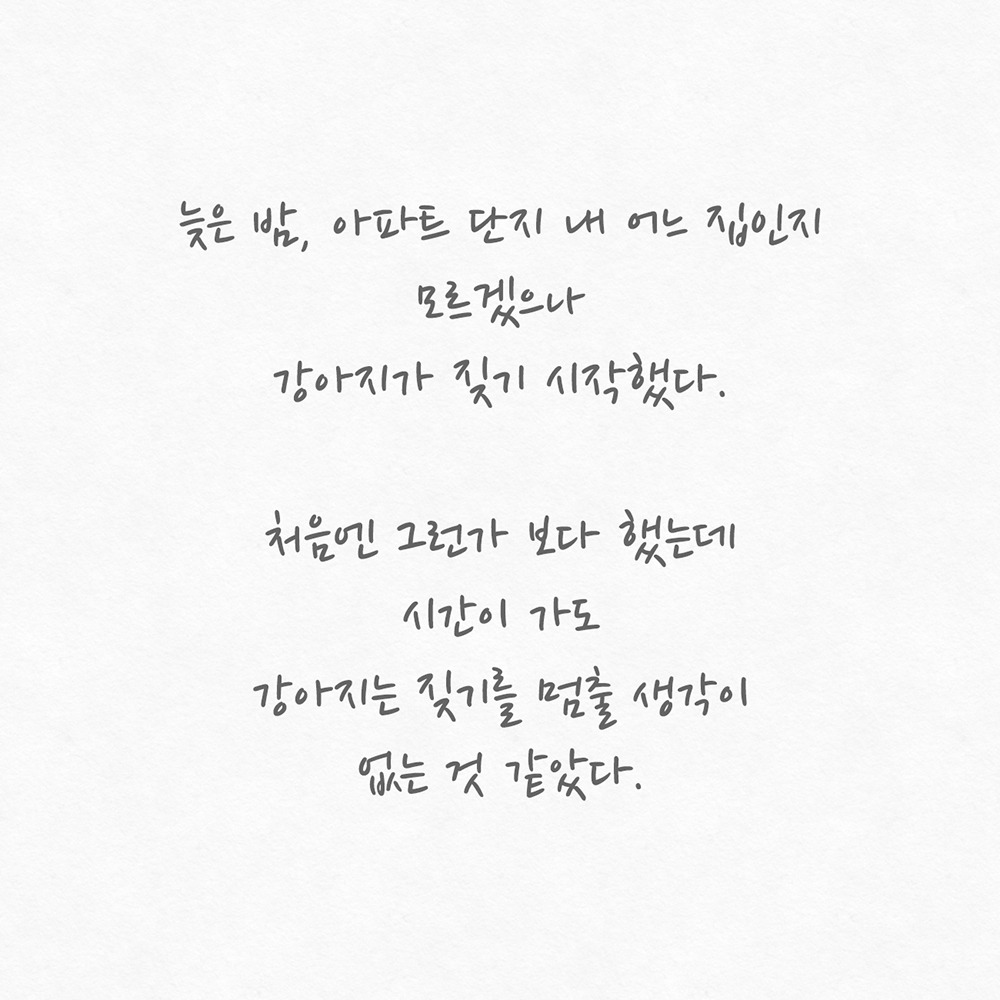 늦은 밤, 아파트 단지 내 어느 집인지
모르겠으나
강아지가 짖기 시작했다.
처음엔 그런가 보다 했는데
시간이 가도
강아지는 짖기를 멈출 생각이
없는 것 같았다.